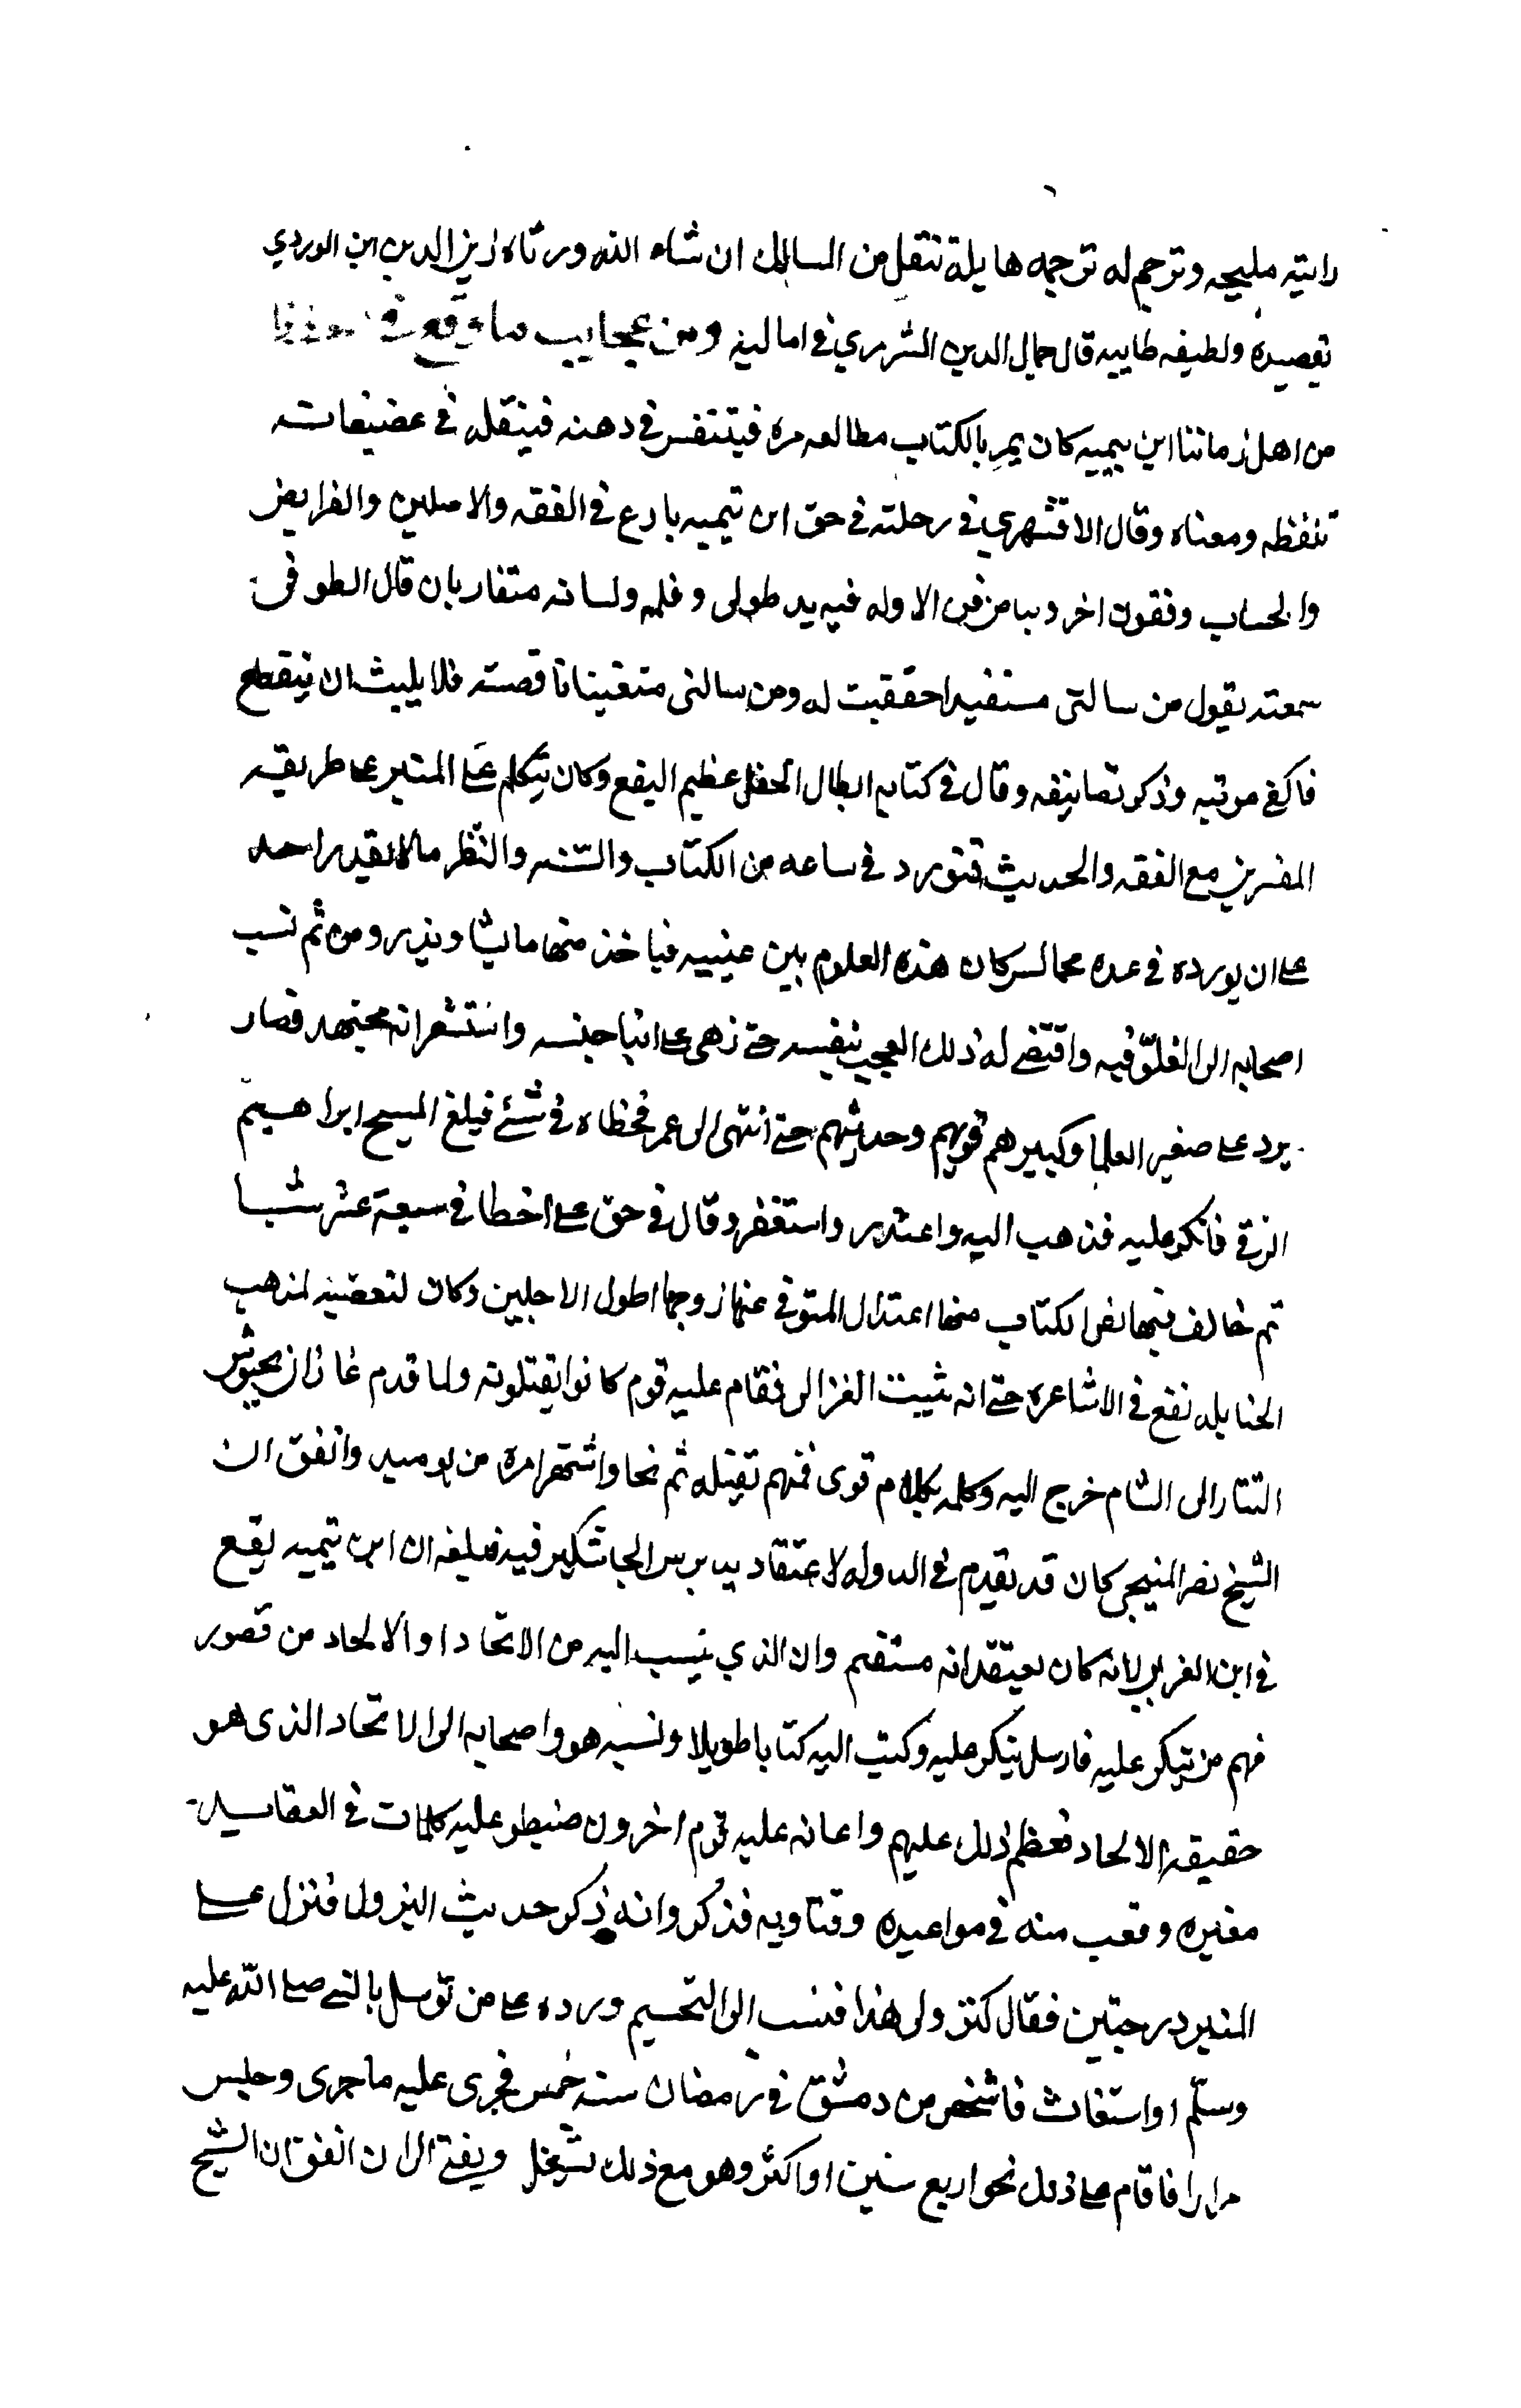 رائيه مليحه وترجم له ترجمه هايلة تنقل من المسالك ان شاء الله ورثاه زين الدين ابن الوردي
بقصيدة ولطيفه طاييه قال جمال الدين السرمري في اماليه ومن عجايب ما وقع في
من اهل زماننا ابن تيميه كان يمر بالكتاب مطالعه مره فينتقش في دهنه فينقله في
بلفظه ومعناه وقال الاقشهري في رحلته في حق ابن تيميه بارع في الفقه والاصلين والفرايض
والحساب وفنون اخر وما من فن الا وله فيه يد طولى وقلمه ولسانه متقاربان قال الطوفي
سمعته يقول من سالني مستفيدا حققت له ومن سالني متعنتا ناقضته فلا يلبث ان ينقطع
فاكفى مونته وذكر تصانيفه وقال في كتابه ابطال الحيل عظيم النفع وكان يتكلم على المنبر على طريقه
المفسرين مع الفقه والحديث فيورد في ساعه من الكتاب والسنه والنظر ما لا يقدر احد
على ان يورده في عده مجالس كان هذه العلوم بين عينيه فياخذ منها ما يشا ويذر ومن ثم نسب
اصحابه الى الغلو فيه واقتضى له ذلك العجب بنفسه حتى زهى على ابنا جنسه واستشعر انه مجتهد فصار
يرد على صغير العلما وكبيرهم قويهم وحديثهم حتى انتهى الى عمر فخطاه في شئ فبلغ الشيخ ابراهيم
الرقي فانكر عليه فذهب اليه واعتذر واستغفر وقال في حق على اخطا في سبعة عشر شيا
ثم خالف فيها نص الكتاب منها اعتداد المتوفي عنها زوجها اطول الاجلين وكان لتعصبه لمذهب
الحنابله يقع في الاشاعره حتى انه سب الغزالي فقام عليه قوم كادوا يقتلونه ولما قدم غازان بجيوش
التتار الى الشام خرج اليه وكلمه بكلام قوى فهم بقتله ثم نجا واشتهر امره من يوميد واتفق ان
الشيخ نصر المنبجي كان قد تقدم في الدوله لاعتقاد بيبرس الجاشنكير فيه فبلغه ان ابن تيميه يقع
في ابن العربي لانه كان يعتقد انه مستقيم وان الذي ينسب اليه من الاتحاد او الالحاد من قصور
فهم من ينكر عليه فارسل ينكر عليه وكتب اليه كتابا طويلا ونسبه هو واصحابه الى الاتحاد الذى هو
حقيقة الالحاد فعظم ذلك عليهم واعانه عليه قوم اخرون ضبطو عليه كلمات في العقايد
مغيره وقعت منه في مواعيده وفتاويه فذكروا انه ذكر حديث النزول فنزل على
المنبر درجتين فقال كنزولي هذا فنسب الى التجسيم ورده على من توسل بالنبي صلى الله عليه
وسلم او استغاث فاشخص من دمشق في رمضان سنه خمس فجرى عليه ما جرى وحبس
مرارا فاقام على ذلك نحو اربع سنين او اكثر وهو مع ذلك يشغل ويفتي الى ان اتفق ان الشيخ